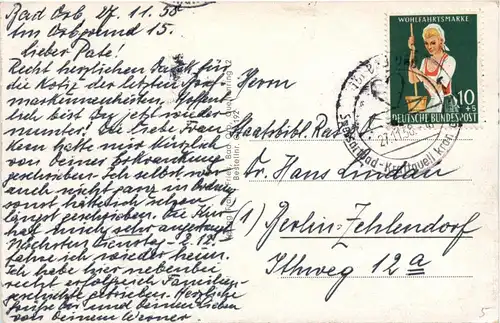 Bad Orb, 27.11.58
Im Orbgrund 15.
Lieber Pate!
Recht herzlichen Dank für
die Notiz der letzten
markenneuheiten. Hoffent
lich bist Du jetzt wieder
munter! Die liebe Frau
hatte mir kürzlich
von Deiner Erkrankung
geschrieben. Ich selbst war
auch nicht ganz in Ordnung
sonst hätte ich schon
längst geschrieben. Die Kur
hat mich sehr angestrengt
Nächsten Dienstag, 2.12.
fahre ich wieder heim.
Ich habe hier nebenbei
recht erfolgreich Familien
geschichte getrieben. Herzliche
Grüße Dir und Deinen Lieben
von Deinem Werner
Herrn
Staatsbibl. Rat
Dr. Hans Lindau
(1) Berlin-Zehlendorf
Ithweg 12a
WOHLFAHRTSMARKE
10
+5
DEUTSCHE BUNDESPOST
27.11.58
Bestellnr.
5